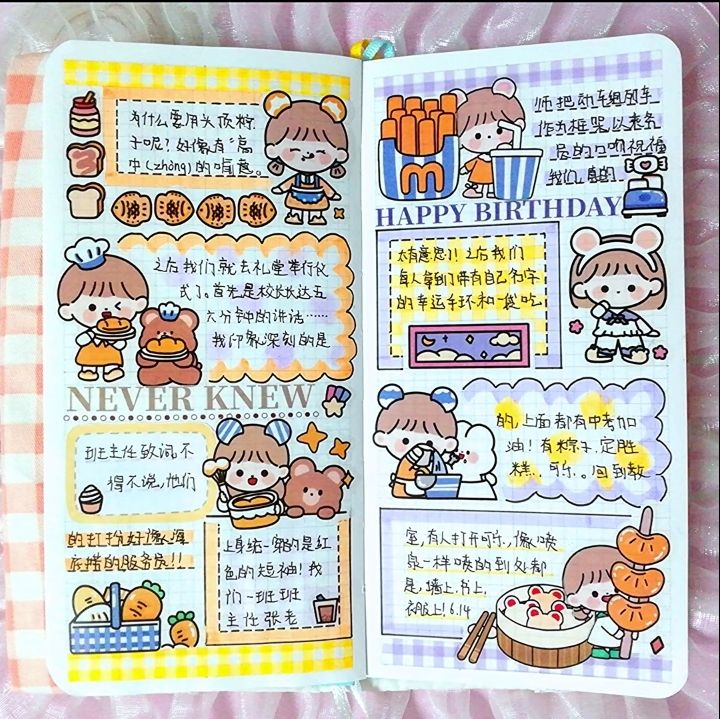 为什么要用头顶粽
子呢？好像有“高
中(zhòng)的寓意。
之后我们就去礼堂举行仪
式了。首先是校长长达五
六分钟的讲话……
我印象深刻的是
NEVER KNEW
班主任致词,不
得不说,他们
的打扮好像海
底捞的服务员!!
上身统一穿的是红
色的短袖!我
们一班班
主任张老
师把动车组列车
作为框架,以乘务
员的口吻祝福
我们,真的
m
HAPPY BIRTHDAY
太有意思了!之后我们
每人拿到了带有自己名字
的幸运手环和一袋吃
的,上面都有中考加
油!有粽子、定胜
糕、可乐。回到教
室,有人打开可乐,像喷
泉一样喷的到处都
是,墙上,书上,
衣服上!6.14